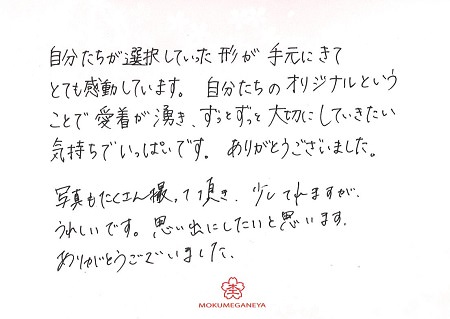 自分たちが選択していった形が手元にきて
とても感動しています。自分たちのオリジナルという
ことで愛着が湧き、ずっとずっと大切にしていきたい
気持ちでいっぱいです。ありがとうございました。
写真もたくさん撮って頂き、少してれますが、
うれしいです。思い出にしたいと思います。
ありがとうございました。
MOKUMEGANEYA